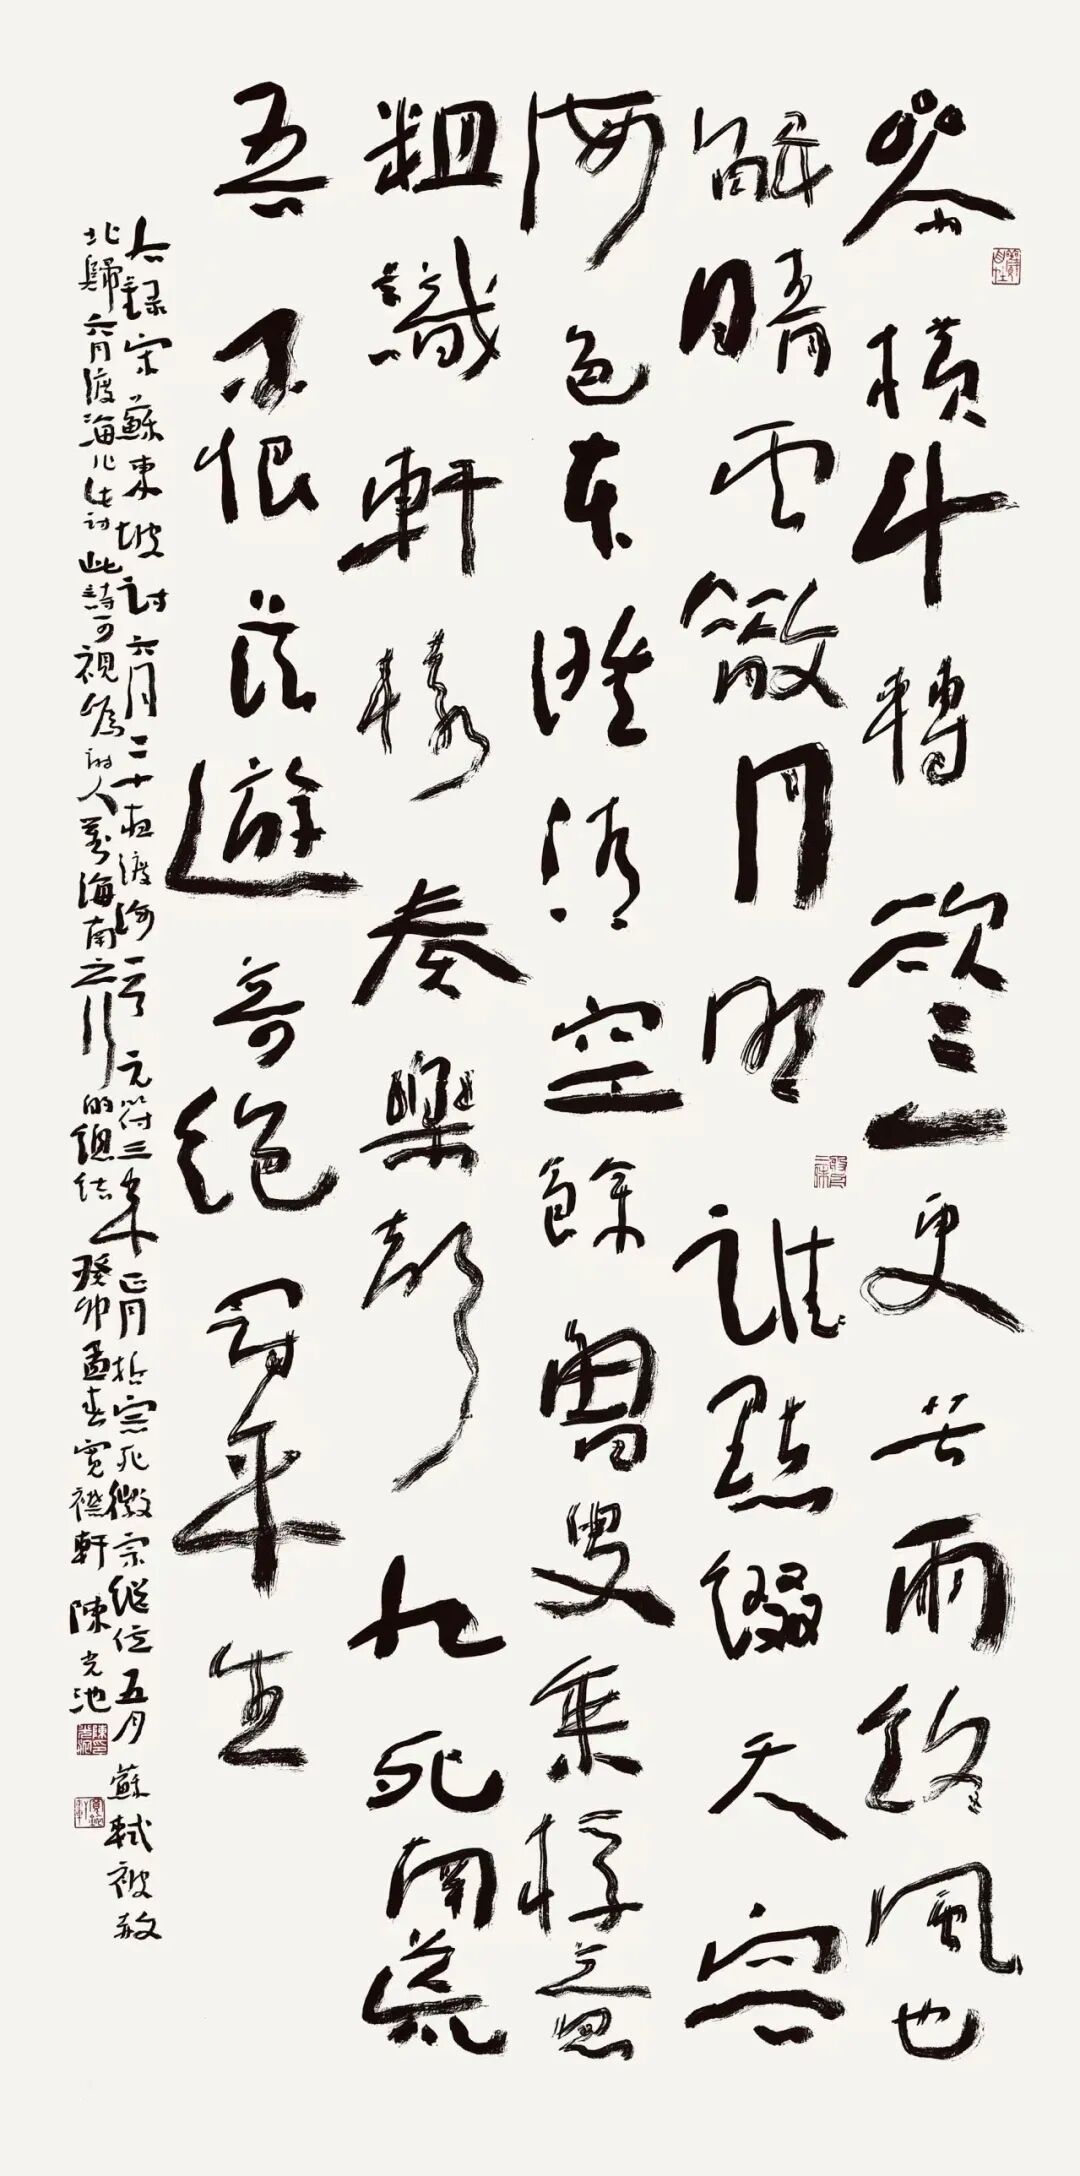 參橫斗轉欲三更苦雨終風也
解晴雲散月明誰點綴天容
海色本澄清空餘魯叟乘桴意
粗識軒轅奏樂聲九死南荒
吾不恨茲遊奇絕冠平生
右錄宋蘇東坡詩六月二十夜渡海一首元符三年正月哲宗死徽宗繼位五月蘇軾被赦
北歸六月渡海作詩此詩可視為詩人海南之行的總結癸卯孟春寬襟軒陳光池